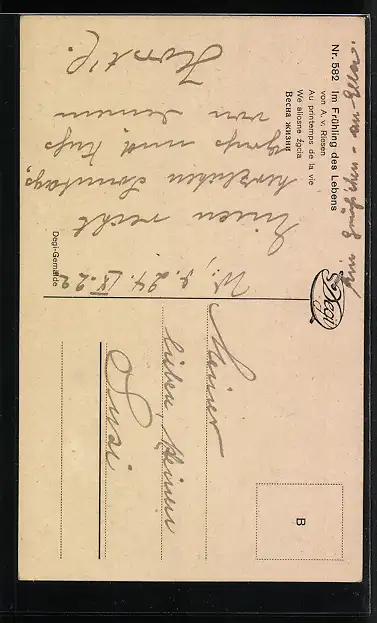 Nr. 582 Im Frühling des Lebens
von A. v. Riesen
Au printemps de la vie
We aliosne żęcia
Весна жизни
Degi
W., d. 24. IX. 22
Einen recht
herzlichen Sonntags,
gruß und Kuß
von deinem
Horst
Degi-Gemälde
Meiner
lieben, kleinen
Susi
B